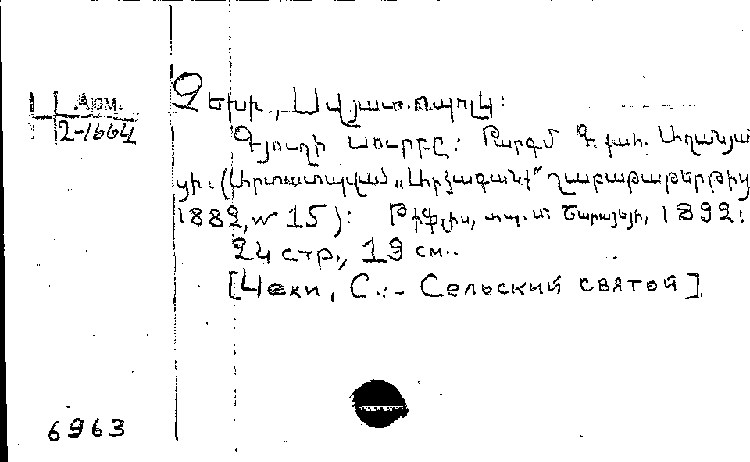 Арм.
2-1664
Չեխի, Սվյատոպոլկ:
Գյուղի սուրբը: Թարգմ. Գ. քահ. Աղանյա
ցի. (Արտատպված „Արձագանք“ շաբաթաթերթից
1882, № 15): Թիֆլիս, տպ. Մ. Շարաձեի, 1892:
24 стр., 19 см..
[Чехи, С.:- Сельский святой]
6963